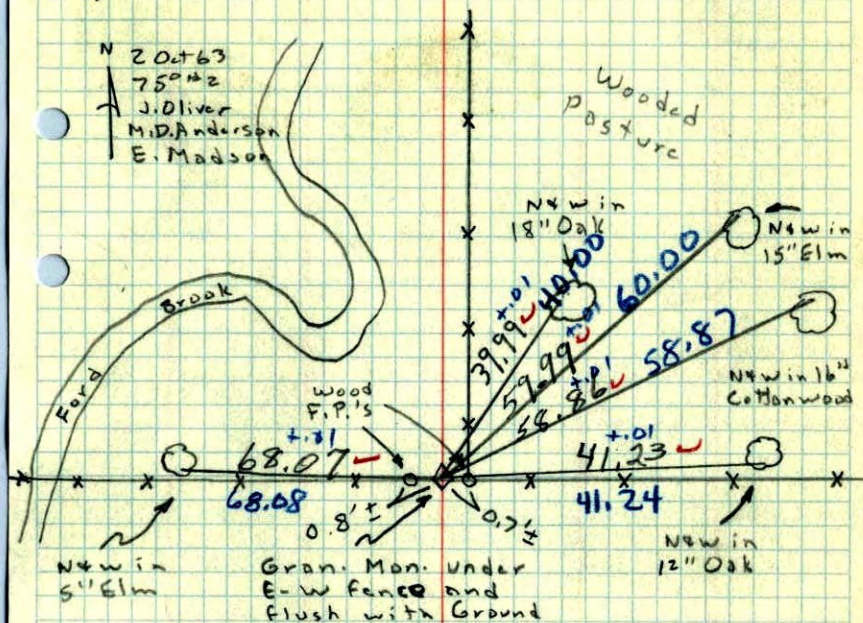 N
2 Oct 63
75°
J. Oliver
M.D. Anderson
E. Madson
Wooded
pasture
N & W in
18" Oak
N & W in
15" Elm
+.01
39.99 ✓
40.00
+.01
59.99 ✓
60.00
+.01
58.86 ✓
58.87
N & W in 16"
Cottonwood
Ford
Brook
Wood
F.P.'s
+.01
68.07 ✓
68.08
+.01
41.23 ✓
41.24
0.8' ±
0.7' ±
N & W in
5" Elm
Gran. Mon. under
E-W Fence and
flush with Ground
N & W in
12" Oak